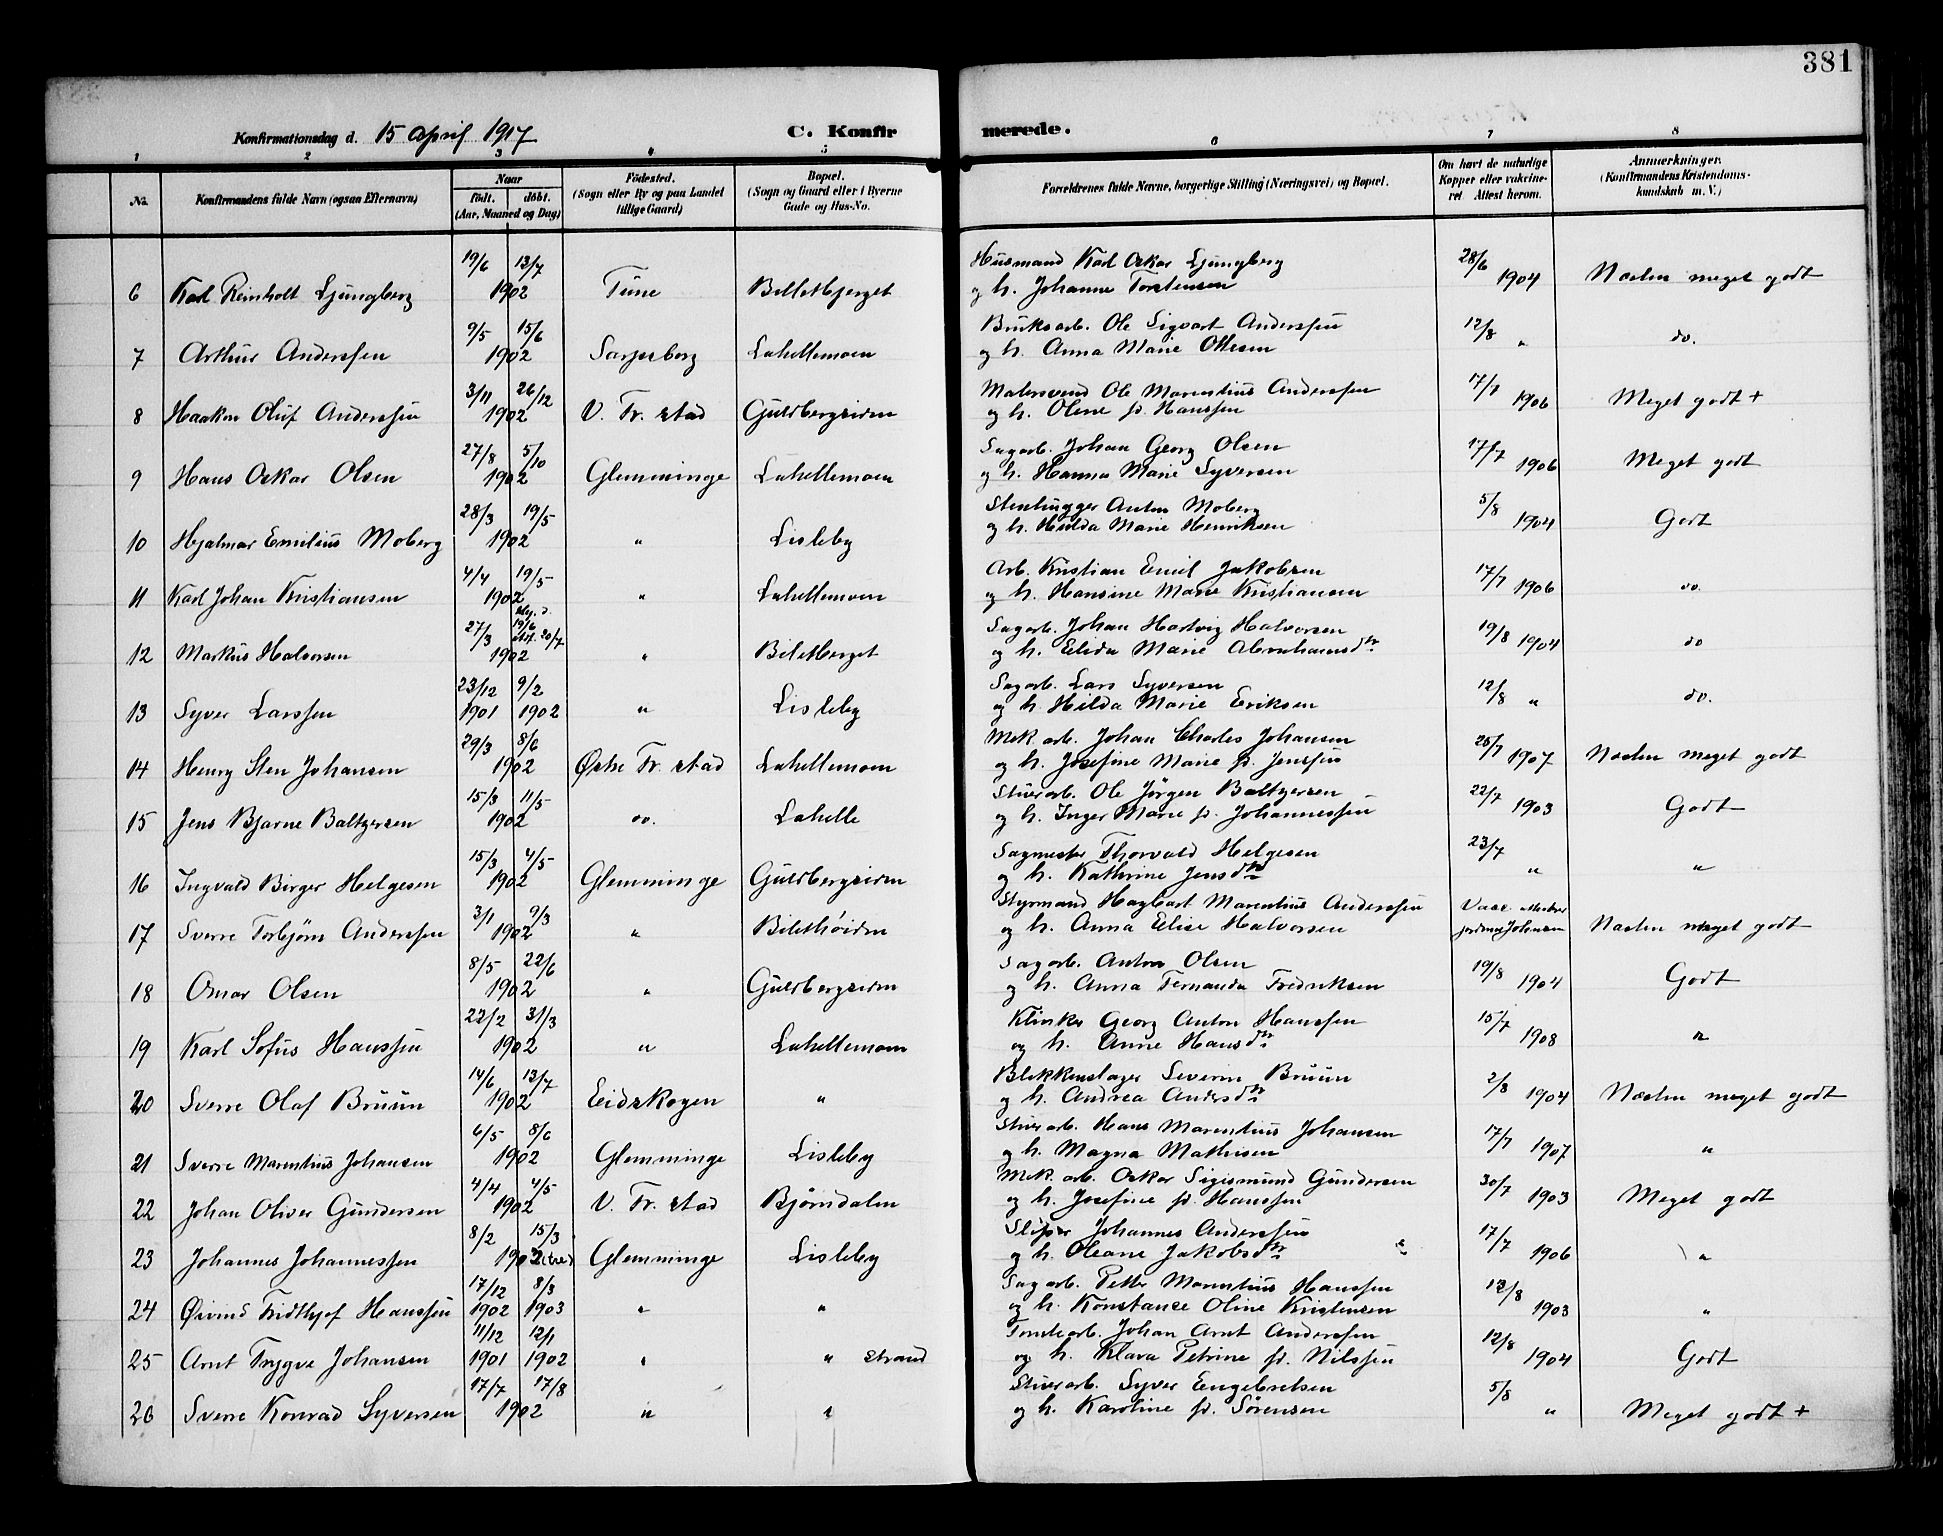 381
Konfirmationsdag d. 15 April 1917 C. Konfirmerede.
1 2 3 4 5 6 7 8
No. Konfirmandens fulde Navn (ogsaa Efternavn) Naar født. døbt. (Aar, Maaned og Dag) Fødested. (Sogn eller By og paa Landet tillige Gaard) Bopæl. (Sogn og Gaard eller i Byerne Gade og Hus-No. Forældrenes fulde Navne, borgerlige Stilling (Næringsvei) og Bopæl. Om havt de naturlige Kopper eller vakcineret Attest herom. Anmærkninger. (Konfirmandens Kristendomskundskab m. V.)
19/6 13/7 Husmand Karl Oskar Ljungberg 28/6
6 Karl Reinholt Ljungberg 1902 Tune Billetbjerget og h. Johanne Torstensen 1904 Næsten meget godt
9/5 15/6 Bruksarb. Ole Sigvart Anderssen 12/8
7 Arthur Anderssen 1902 Sarpsborg Lahellemoen og h. Anna Marie Ottesen " do.
3/11 26/12 Malersvend Ole Marentius Anderssen 17/7
8 Haakon Oluf Anderssen 1902 V. Fr. stad Guldbergsiden og h. Olene f. Hanssen 1906 Meget godt +
27/8 5/10 Sagarb. Johan Georg Olsen 17/7
9 Hans Oskar Olsen 1902 Glemminge Lahellemoen og h. Hanna Marie Syversen 1906 Meget godt
28/3 19/5 Stenhugger Anton Moberg 5/8
10 Hjalmar Emilius Moberg 1902 " Lisleby og h. Hulda Marie Henriksen 1904 Godt
4/4 19/5 Arb. Kristian Emil Jakobsen 17/7
11 Karl Johan Kristiansen 1902 " Lahellemoen og h. Hansine Marie Kristiansen 1906 do.
27/3 19/6 20/7 Sagarb. Johan Hartvig Halvorsen 19/8
12 Markus Halvorsen 1902 " Biletberget og h. Elida Marie Abrahamsdtr 1904 do
23/12 9/2 Sagarb. Lars Syversen 12/8
13 Syver Larssen 1901 1902 " Lisleby og h. Hilda Marie Eriksen " do.
29/3 8/6 Mek. arb. Johan Charles Johansen 25/7
14 Henry Sten Johansen 1902 Østre Fr. stad Lahellemoen og h. Josefine Marie f. Jenssen 1907 Næsten meget godt
15/3 11/5 Stuerarb. Ole Jørgen Baltzersen 22/7
15 Jens Bjarne Baltzersen 1902 do. Lahelle og h. Inger Marie f. Johannessen 1903 Godt
15/3 4/5 Sagmester Thorvald Helgesen 23/7
16 Ingvald Birger Helgesen 1902 Glemminge Guldbergsiden og h. Kathrine Jensdtr " "
3/1 9/3 Styrmand Hagbart Marentius Anderssen Vacc.
17 Sverre Torbjørn Anderssen 1902 " Bilethøiden og h. Anna Elise Halvorsen jordmor Johansen Næsten meget godt
8/5 22/6 Sagarb. Anton Olsen 19/8
18 Omar Olsen 1902 " Guldbergsiden og h. Anna Fernanda Fredriksen 1904 Godt
22/2 31/3 Klinker Georg Anton Hanssen 15/7
19 Karl Sofus Hanssen 1902 " Lahellemoen og h. Anne Hansdtr 1908 "
14/6 13/7 Blekkenslager Severin Bruun 2/8
20 Sverre Olaf Bruun 1902 Eidskogen " og h. Andrea Andersdtr 1904 Næsten meget godt
6/5 8/6 Stuerarb. Hans Marentius Johansen 17/7
21 Sverre Marentius Johansen 1902 Glemminge Lisleby og h. Magna Mathisen 1907 "
4/4 4/5 Mek. arb. Oskar Sigismund Gundersen 30/7
22 Johan Oliver Gundersen 1902 V. Fr. stad Bjørndalen og h. Josefine f. Hanssen 1903 Meget godt
8/2 15/3 Sliper Johannes Anderssen 17/7
23 Johannes Johannessen 1902 Glemminge Lisleby og h. Oleane Jakobsdtr 1906 "
17/12 8/3 Sagarb. Petter Marentius Hanssen 12/8
24 Øivind Fridthjof Hanssen 1902 1903 " " og h. Konstance Oline Kristensen 1903 "
11/12 12/1 Tomtearb. Johan Arnt Anderssen 12/8
25 Arnt Trygve Johansen 1901 1902 " " strand og h. Klara Petrine f. Nilssen 1904 Godt
17/7 17/8 Stuerarb. Syver Engebretsen 5/8
26 Sverre Konrad Syversen 1902 " " og h. Karoline f. Sørensen " Meget godt +